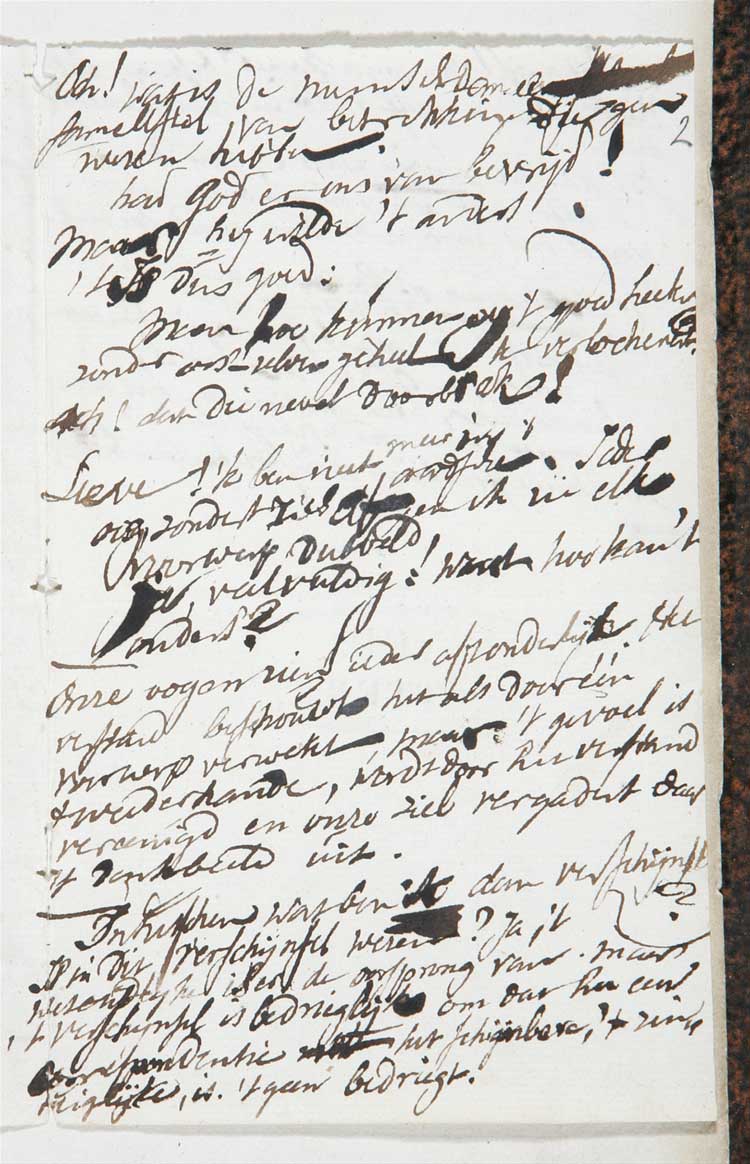 Och! wat is de menschdom een
samelstel van betrekkingen die geen
wezen hebben.
had God er ons van bevrijd!
Maar hy wilde 't anders
't is dus goed:
Maar hoe kunnen wy 't goed
zonder ons zelven geheel te verlochenen
ach! dan die nevel doorbrak!
Lieve! ik ben niet meer
oog zonder ziel en ik zie elk
voorwerp dubbeld
ja, veelvuldig! want hoe kan 't
anders?
Onze oogen zien ieder afzonderlijk. Het
verstand beschouwt het als door één
voorwerp verwekt maar 't gevoel is
tweederhande, wordt door het verstand
vereenigd en onze ziel vergadert daar
't denkbeeld uit.
Intusschen wat ben ik dan verschijnsel
in dit verschijnsel wezen? Ja 't
wezendlijke is er de oorsprong van. maar
't verschijnsel is bedrieglijk om dat het een
correspondentie het schijnbare, 't zin-
tuiglijke, is 't geen bedriegt.
2